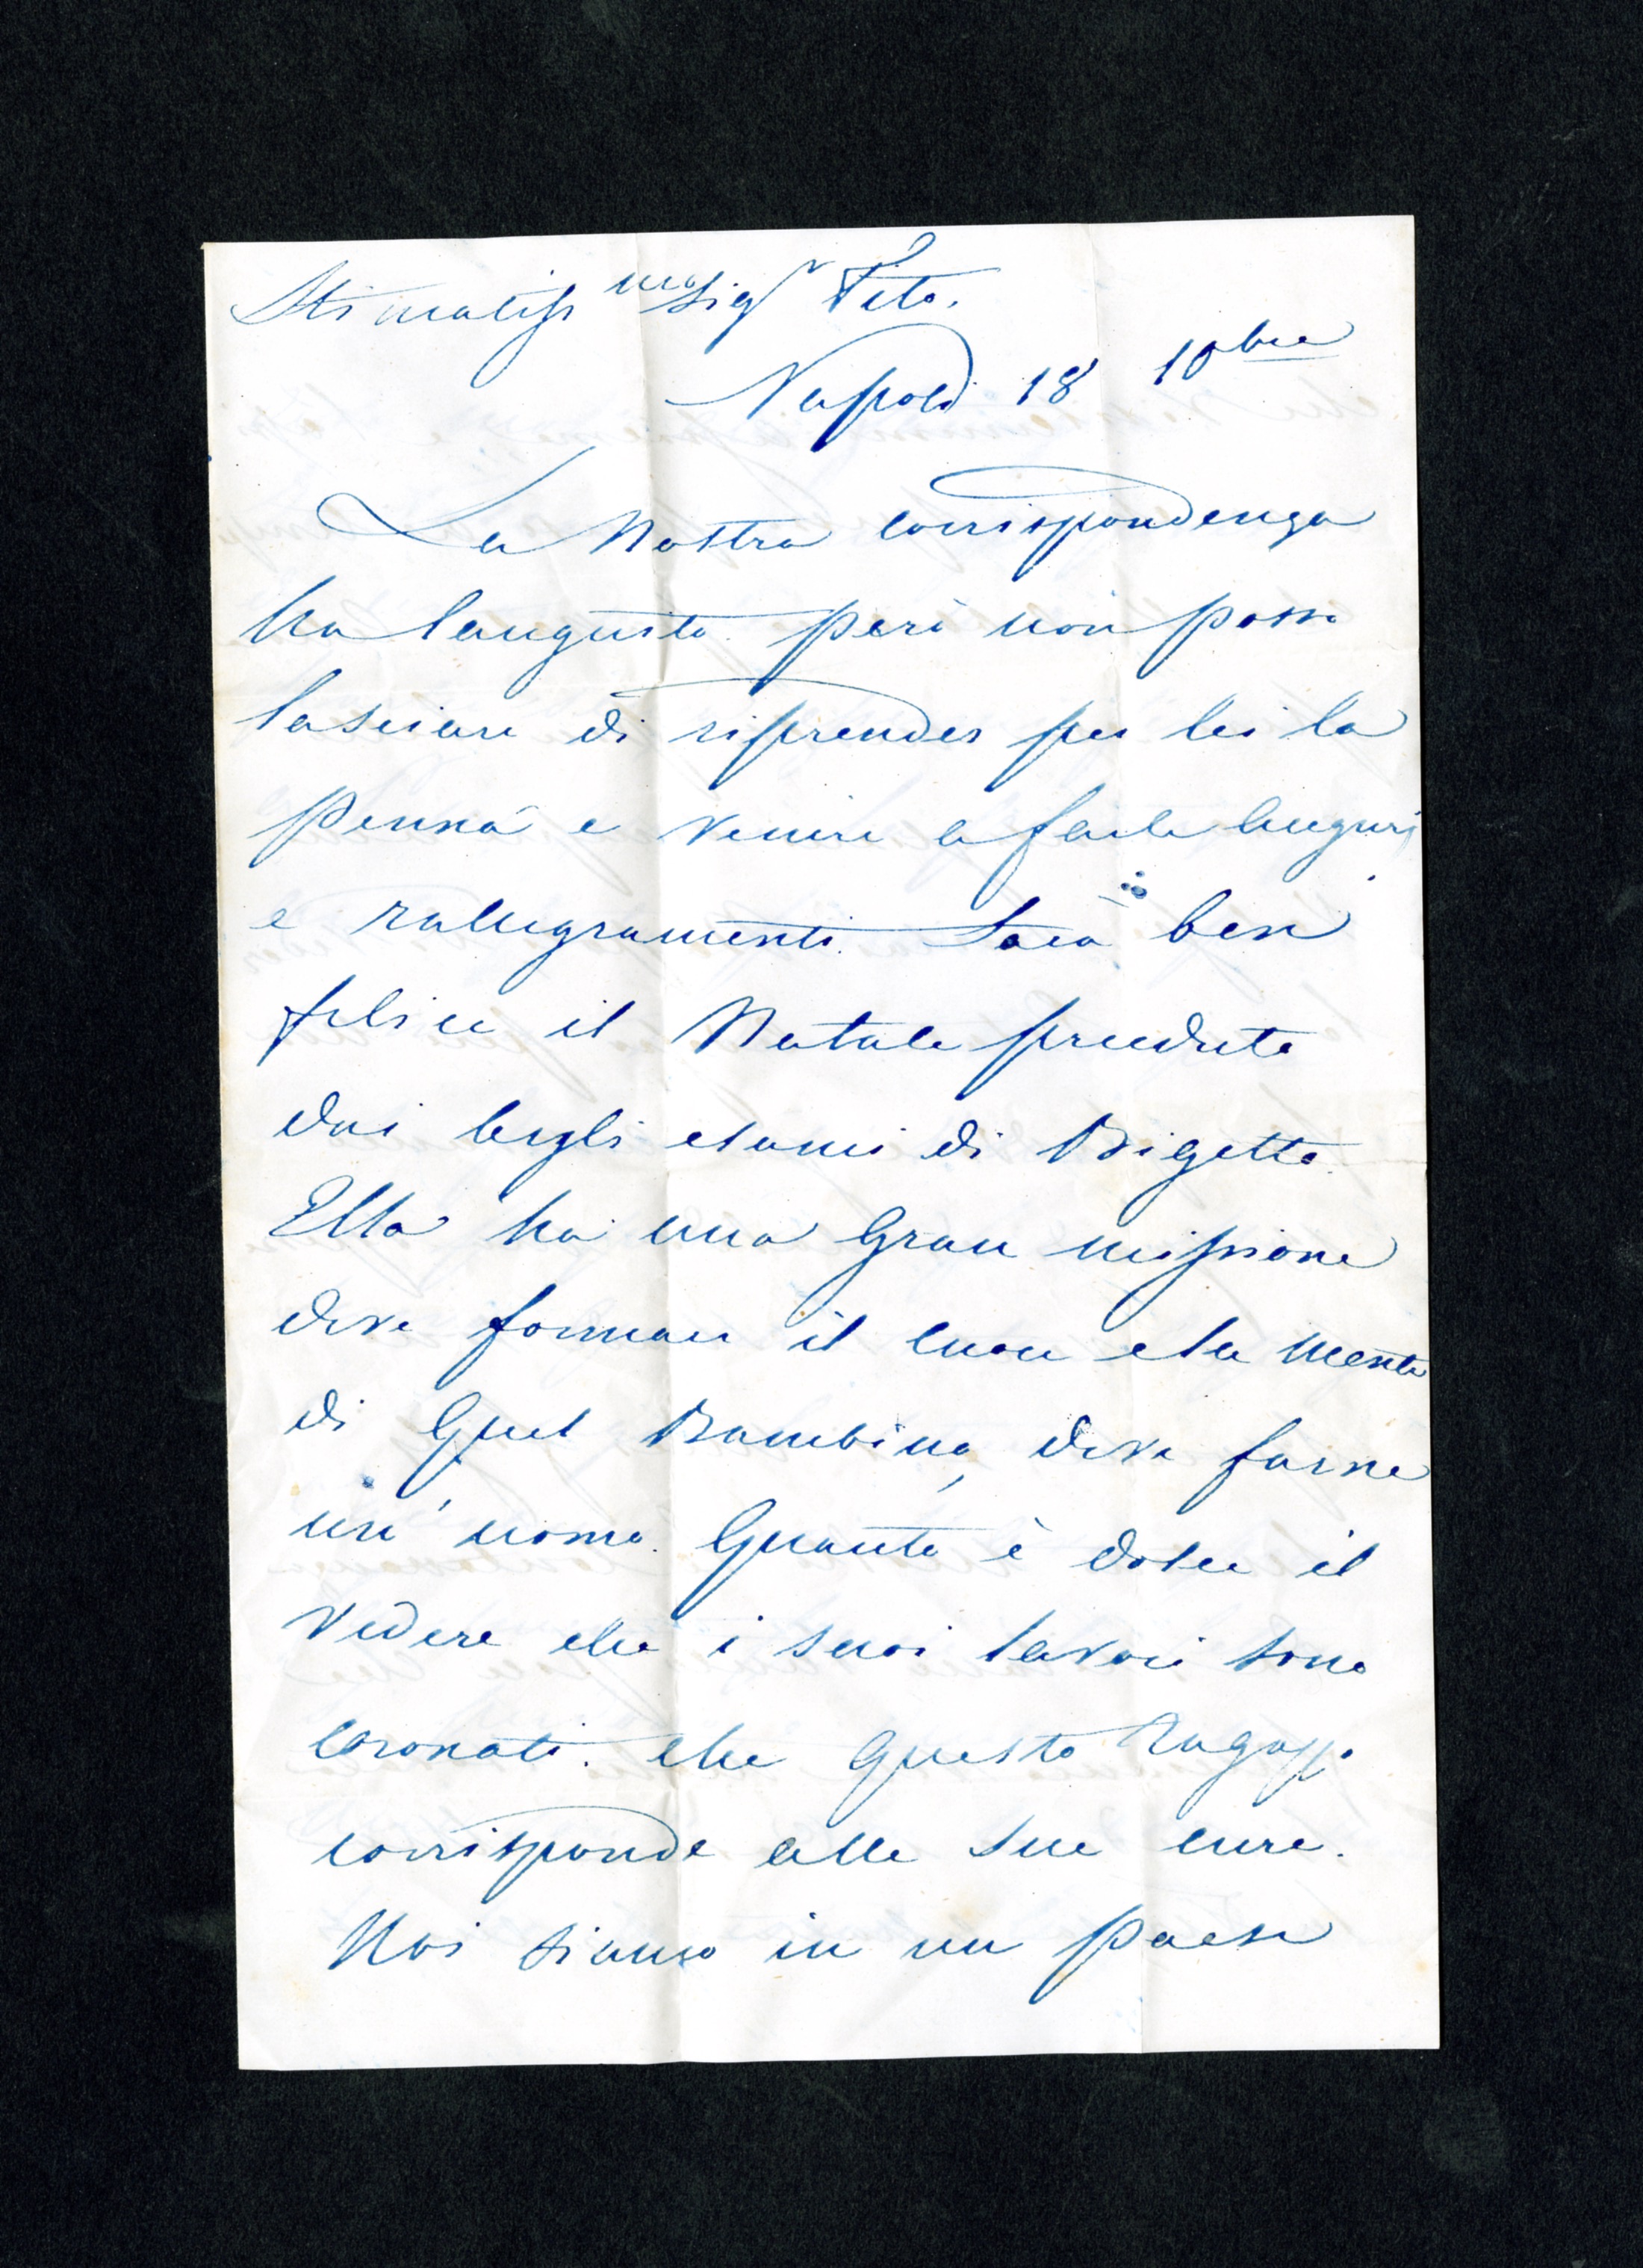 Stimatiss mo Sigr Tito.
Napoli 18 10bre
La Nostra corrispondenza
ha languito. però non posso
lasciare di riprender per lei la
penna e venire a farle auguri
e rallegramenti. Sarà ben
felice il Natale preceduto
dai begli esami di Bigetto.
Ella ha una Gran missione
deve formare il cuore e la mente
di Quel Bambino, deve farne
un' uomo. Quanto è dolce il
vedere che i suoi lavori sono
coronati. che Questo Ragazzo
corrisponde alle sue cure.
Noi siamo in un paese